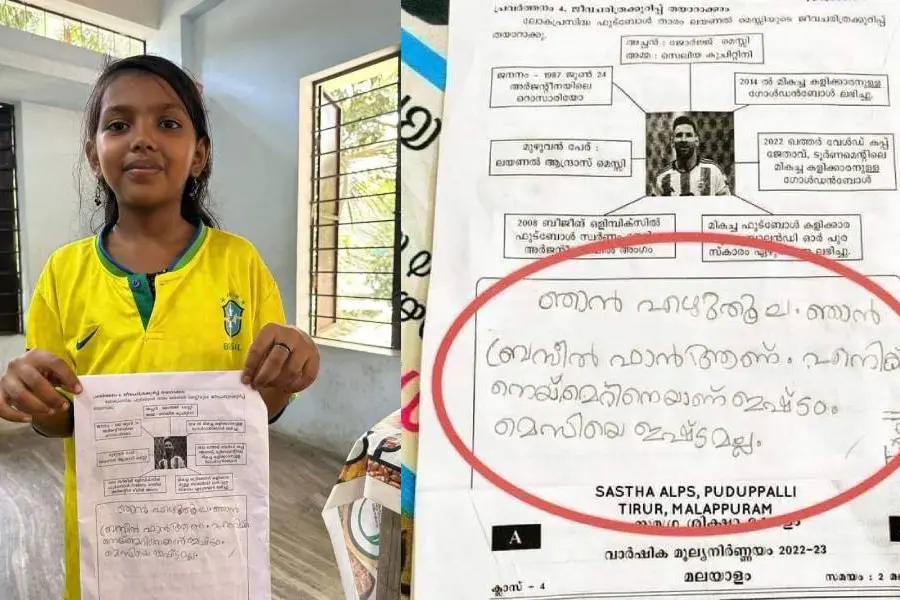 പ്രവർത്തനം 4. ജീവചരിത്രക്കുറിപ്പ് തയാറാക്കാം
ലോകപ്രസിദ്ധ ഫുട്ബോൾ താരം ലയണൽ മെസ്സിയുടെ ജീവചരിത്രക്കുറിപ്പ്
തയാറാക്കൂ.
അച്ഛൻ : ജോർജ്ജ് മെസ്സി
അമ്മ : സെലിയ കുചിറ്റിനി
ജനനം - 1987 ജൂൺ 24
അർജന്റീനയിലെ
റൊസാരിയോ
2014 ൽ മികച്ച കളിക്കാരനുള്ള
ഗോൾഡൻബോൾ ലഭിച്ചു.
മുഴുവൻ പേര് :
ലയണൽ ആന്ദ്രാസ് മെസ്സി
2022 ഖത്തർ വേൾഡ് കപ്പ്
ജേതാവ്, ടൂർണമെന്റിലെ
മികച്ച കളിക്കാരനുള്ള
ഗോൾഡൻബോൾ
2008 ബീജീങ്ങ് ഒളിമ്പിക്സിൽ
ഫുട്ബോൾ സ്വർണം
അംഗം
മികച്ച ഫുട്ബോൾ കളിക്കാര
ബാലൻഡി ഓർ പുര
സ്കാരം ലഭിച്ചു.
ഞാൻ എഴുതൂല. ഞാൻ
ബ്രസീൽ ഫാൻ ആണ്. എനിക്ക്
നെയ്മെറിനെയാണ് ഇഷ്ടം
മെസിയെ ഇഷ്ടമല്ല.
SASTHA ALPS, PUDUPPALLI
TIRUR, MALAPPURAM
A
വാർഷിക മൂല്യനിർണ്ണയം 2022-23
മലയാളം
ക്ലാസ് - 4
സമയം : 2
BRASIL